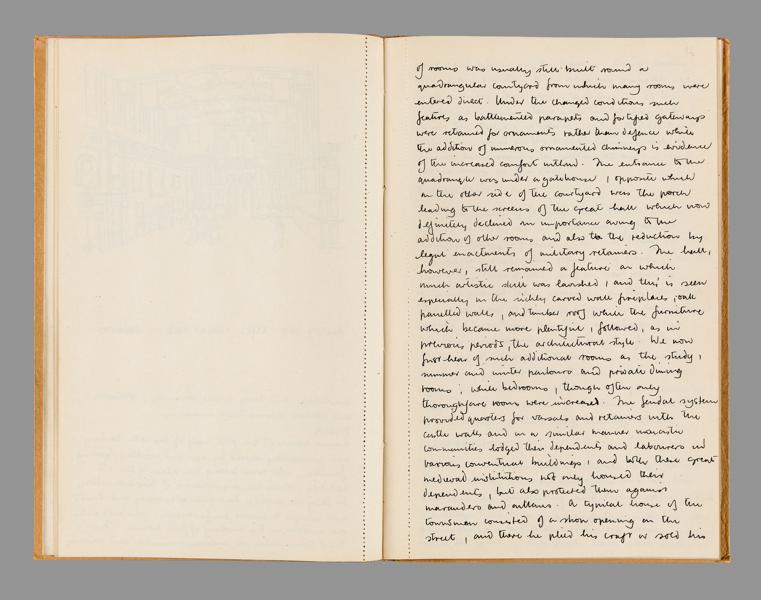 of rooms was usually still built round a
quadrangular courtyard from which many rooms were
entered direct. Under the changed conditions such
features as battlemented parapets and fortified gateways
were retained for ornaments rather than defence while
the addition of numerous ornamented chimneys is evidence
of the increased comfort within. The entrance to the
quadrangle was under a gatehouse, opposite which
on the other side of the courtyard was the porch
leading to the screens of the great hall which now
definitely declined in importance owing to the
addition of other rooms and also to the reduction by
legal enactments of military retainers. The hall,
however, still remained a feature on which
much artistic skill was lavished, and this is seen
especially in the richly carved wall fireplaces, oak
panelled walls, and timber roof while the furniture
which became more plentiful, followed, as in
previous periods, the architectural style. We now
first hear of such additional rooms as the study,
summer and winter parlours and private dining
rooms, while bedrooms, though often only
thoroughfare rooms were increased. The feudal system
provided quarters for vassals and retainers within the
castle walls and in a similar manner monastic
communities lodged their dependents and labourers in
various conventual buildings, and both these great
medieval institutions not only housed their
dependents, but also protected them against
marauders and outlaws. A typical house of the
townsman consisted of a shop opening on the
street, and there he plied his craft or sold his